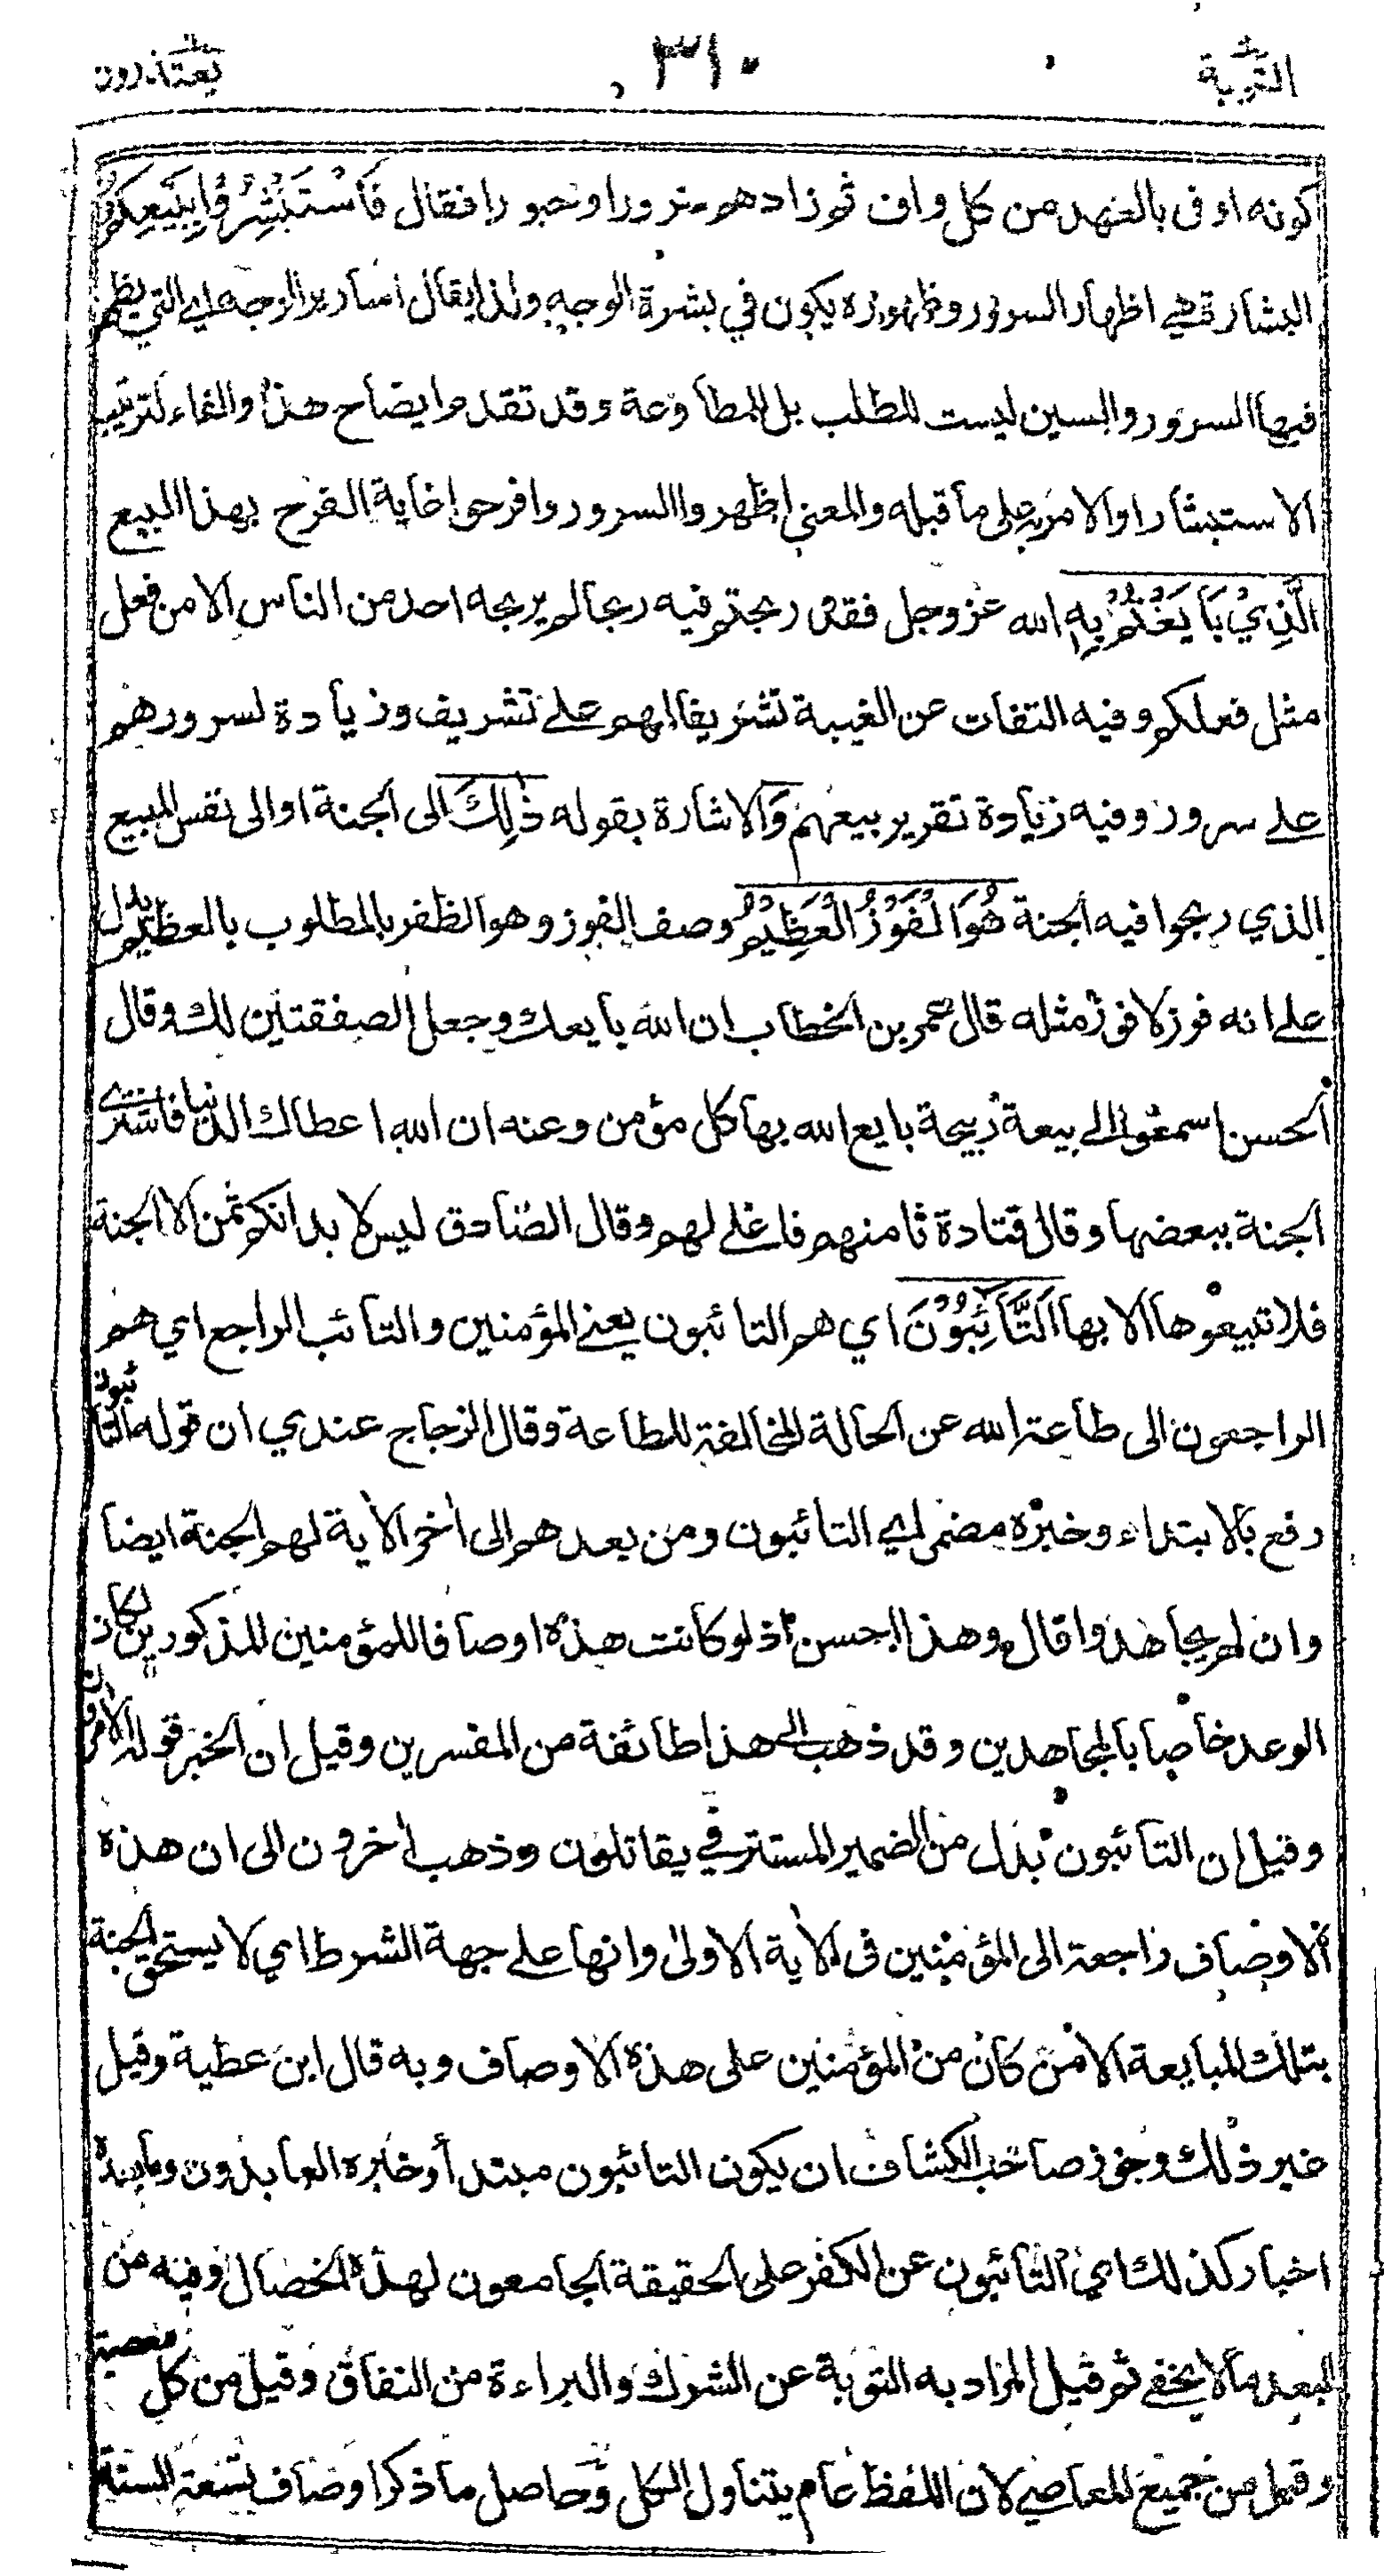 التوبة ٣١٠ يعتذرون
كونه اوفى بالعهد من كل واف ثم زادهم سرورا وحبورا فقال فَاسْتَبْشِرُوْا بِبَيْعِكُمُ
البشارة هي اظهار السرور وظهوره يكون في بشرة الوجه ولذا يقال اسارير الوجه اي التي يظهر
فيها السرور والسين ليست للطلب بل للمطاوعة وقد تقدم ايضاح هذا والفاء لترتيب
الاستبشار او الامر به على ما قبله والمعنى اظهروا السرور وافرحوا غاية الفرح بهذا البيع
الَّذِيْ بَايَعْتُمْ بِهٖ الله عز وجل فقد ربحتم فيه ربحا لم يربحه احد من الناس الا من فعل
مثل فعلكم وفيه التفات عن الغيبة تشريفا لهم على تشريف وزيادة لسرورهم
على سرور وفيه زيادة تقرير بيعهم وَالاشارة بقوله ذٰلِكَ الى الجنة او الى نفس البيع
الذي ربحوا فيه الجنة هُوَ الْفَوْزُ الْعَظِيْمُ وصف الفوز وهو الظفر بالمطلوب بالعظيم يدل
على انه فوز لا فوز مثله قال عمر بن الخطاب ان الله بايعك وجعل الصفقتين لك وقال
الحسن اسمعوا الى بيعة ربيحة بايع الله بها كل مؤمن وعنه ان الله اعطاك الدنيا فاشتري
الجنة ببعضها وقال قتادة ثامنهم فاغلى لهم وقال الصادق ليس لابدانكم ثمن الا الجنة
فلا تبيعوها الا بها اَلتَّائِبُوْنَ اي هم التائبون يعني المؤمنين والتائب الراجع اي هم
الراجعون الى طاعة الله عن الحالة المخالفة للطاعة وقال الزجاج عندي ان قوله التائبون
رفع بالابتداء وخبره مضمر اي التائبون ومن بعدهم الى اٰخر الاٰية لهم الجنة ايضا
وان لم يجاهدوا قال وهذا احسن اذ لو كانت هذه اوصافا للمؤمنين المذكورين لكان
الوعد خاصا بالمجاهدين وقد ذهب الى هذا طائفة من المفسرين وقيل ان الخبر قوله الاٰمرون
وقيل ان التائبون بدل من الضمير المستتر في يقاتلون وذهب اٰخرون الى ان هذه
الاوصاف راجعة الى المؤمنين في الاٰية الاولى وانها على جهة الشرط اي لا يستحق الجنة
بتلك المبايعة الا من كان من المؤمنين على هذه الاوصاف وبه قال ابن عطية وقيل
غير ذلك وجوز صاحب الكشاف ان يكون التائبون مبتدأ وخبره العابدون وما بعده
اخبار كذلك اي التائبون عن الكفر على الحقيقة الجامعون لهذه الخصال وفيه من
البعد ما لا يخفى ثم قيل المراد به التوبة عن الشرك والبراءة من النفاق وقيل من كل معصية
وقيل من جميع المعاصي لان اللفظ عام يتناول الكل وحاصل ما ذكر اوصاف تسعة الستة